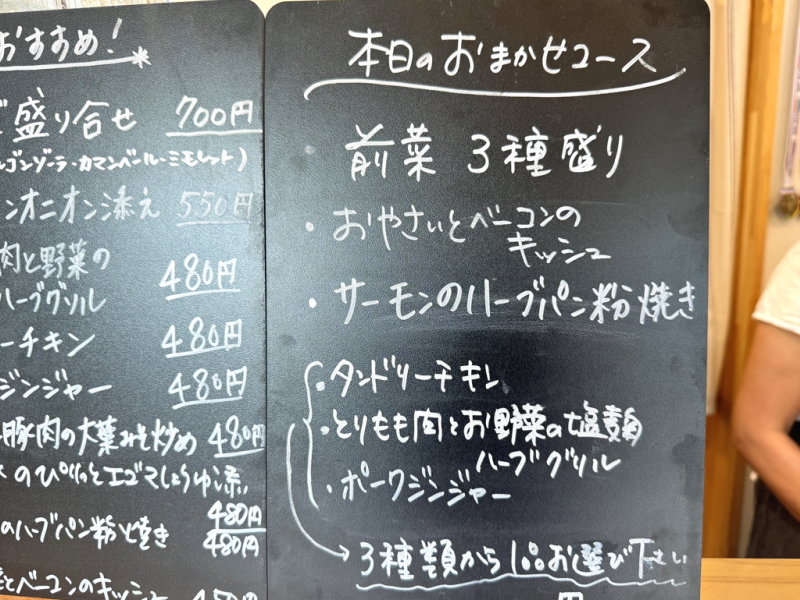 おすすめ!
盛り合せ 700円
ゴンゾーラ・カマンベール・ミモレット)
ンオニオン添え 550円
肉と野菜の
ハーブグリル 480円
ーチキン 480円
ジンジャー 480円
豚肉の大葉みそ炒め 480円
のハーブパン粉焼き 480円
480円
とベーコンのキッシュ
本日のおまかせコース
前菜 3種盛り
・おやさいとベーコンの
キッシュ
・サーモンのハーブパン粉焼き
・タンドリーチキン
・とりもも肉とお野菜の塩麹
ハーブグリル
・ポークジンジャー
3種類から1品お選び下さい
円